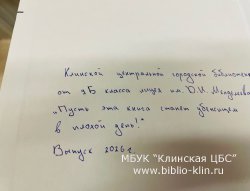 Клинской центральной городской библиотеке
от 9Б класса лицея им. Д.И. Менделеева
"Пусть эта книга станет убежищем
в плохой день!"
Выпуск 2026г.
МБУК "Клинская ЦБС"
www.biblio-klin.ru